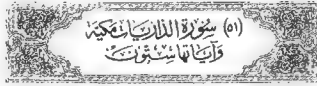 (٥١) سورة الذاريات مكية
وآياتها ستون